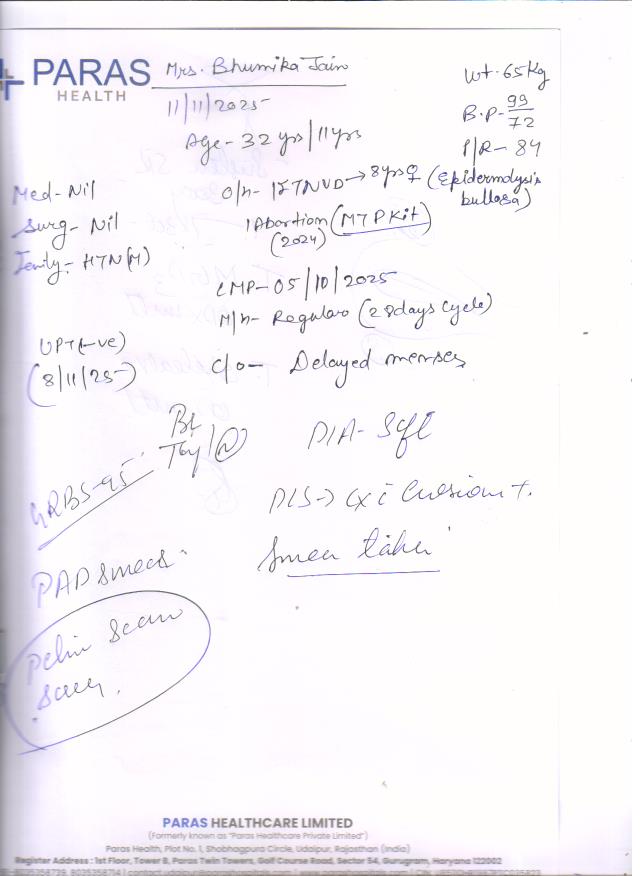 PARAS
HEALTH
Mrs. Bhumika Jain
11/11/2025
Wt. 65Kg
B.P- 99/72
P/R- 84
Age- 32 yrs/11yrs
Med- Nil
Surg- Nil
Family- HTN(M)
O/h- 1FTNVD→8yrs♀ (Epidermolysis bullosa)
1Abortion (MTP Kit)
(2024)
LMP- 05/10/2025
M/h- Regular (28days cycle)
UPT(-ve)
(8/11/25)
C/o- Delayed menses
Br/Thy/(N)
P/A- Soft
GRBS-95
P/S→ Cx c Erosion +.
PAP smear.
Smear taken
Pelvic Scan
PARAS HEALTHCARE LIMITED
(Formerly known as "Paras Healthcare Private Limited")
Paras Health, Plot No. 1, Shobhagpura Circle, Udaipur, Rajasthan (India)
Register Address : 1st Floor, Tower B, Paras Twin Towers, Golf Course Road, Sector 54, Gurugram, Haryana 122002